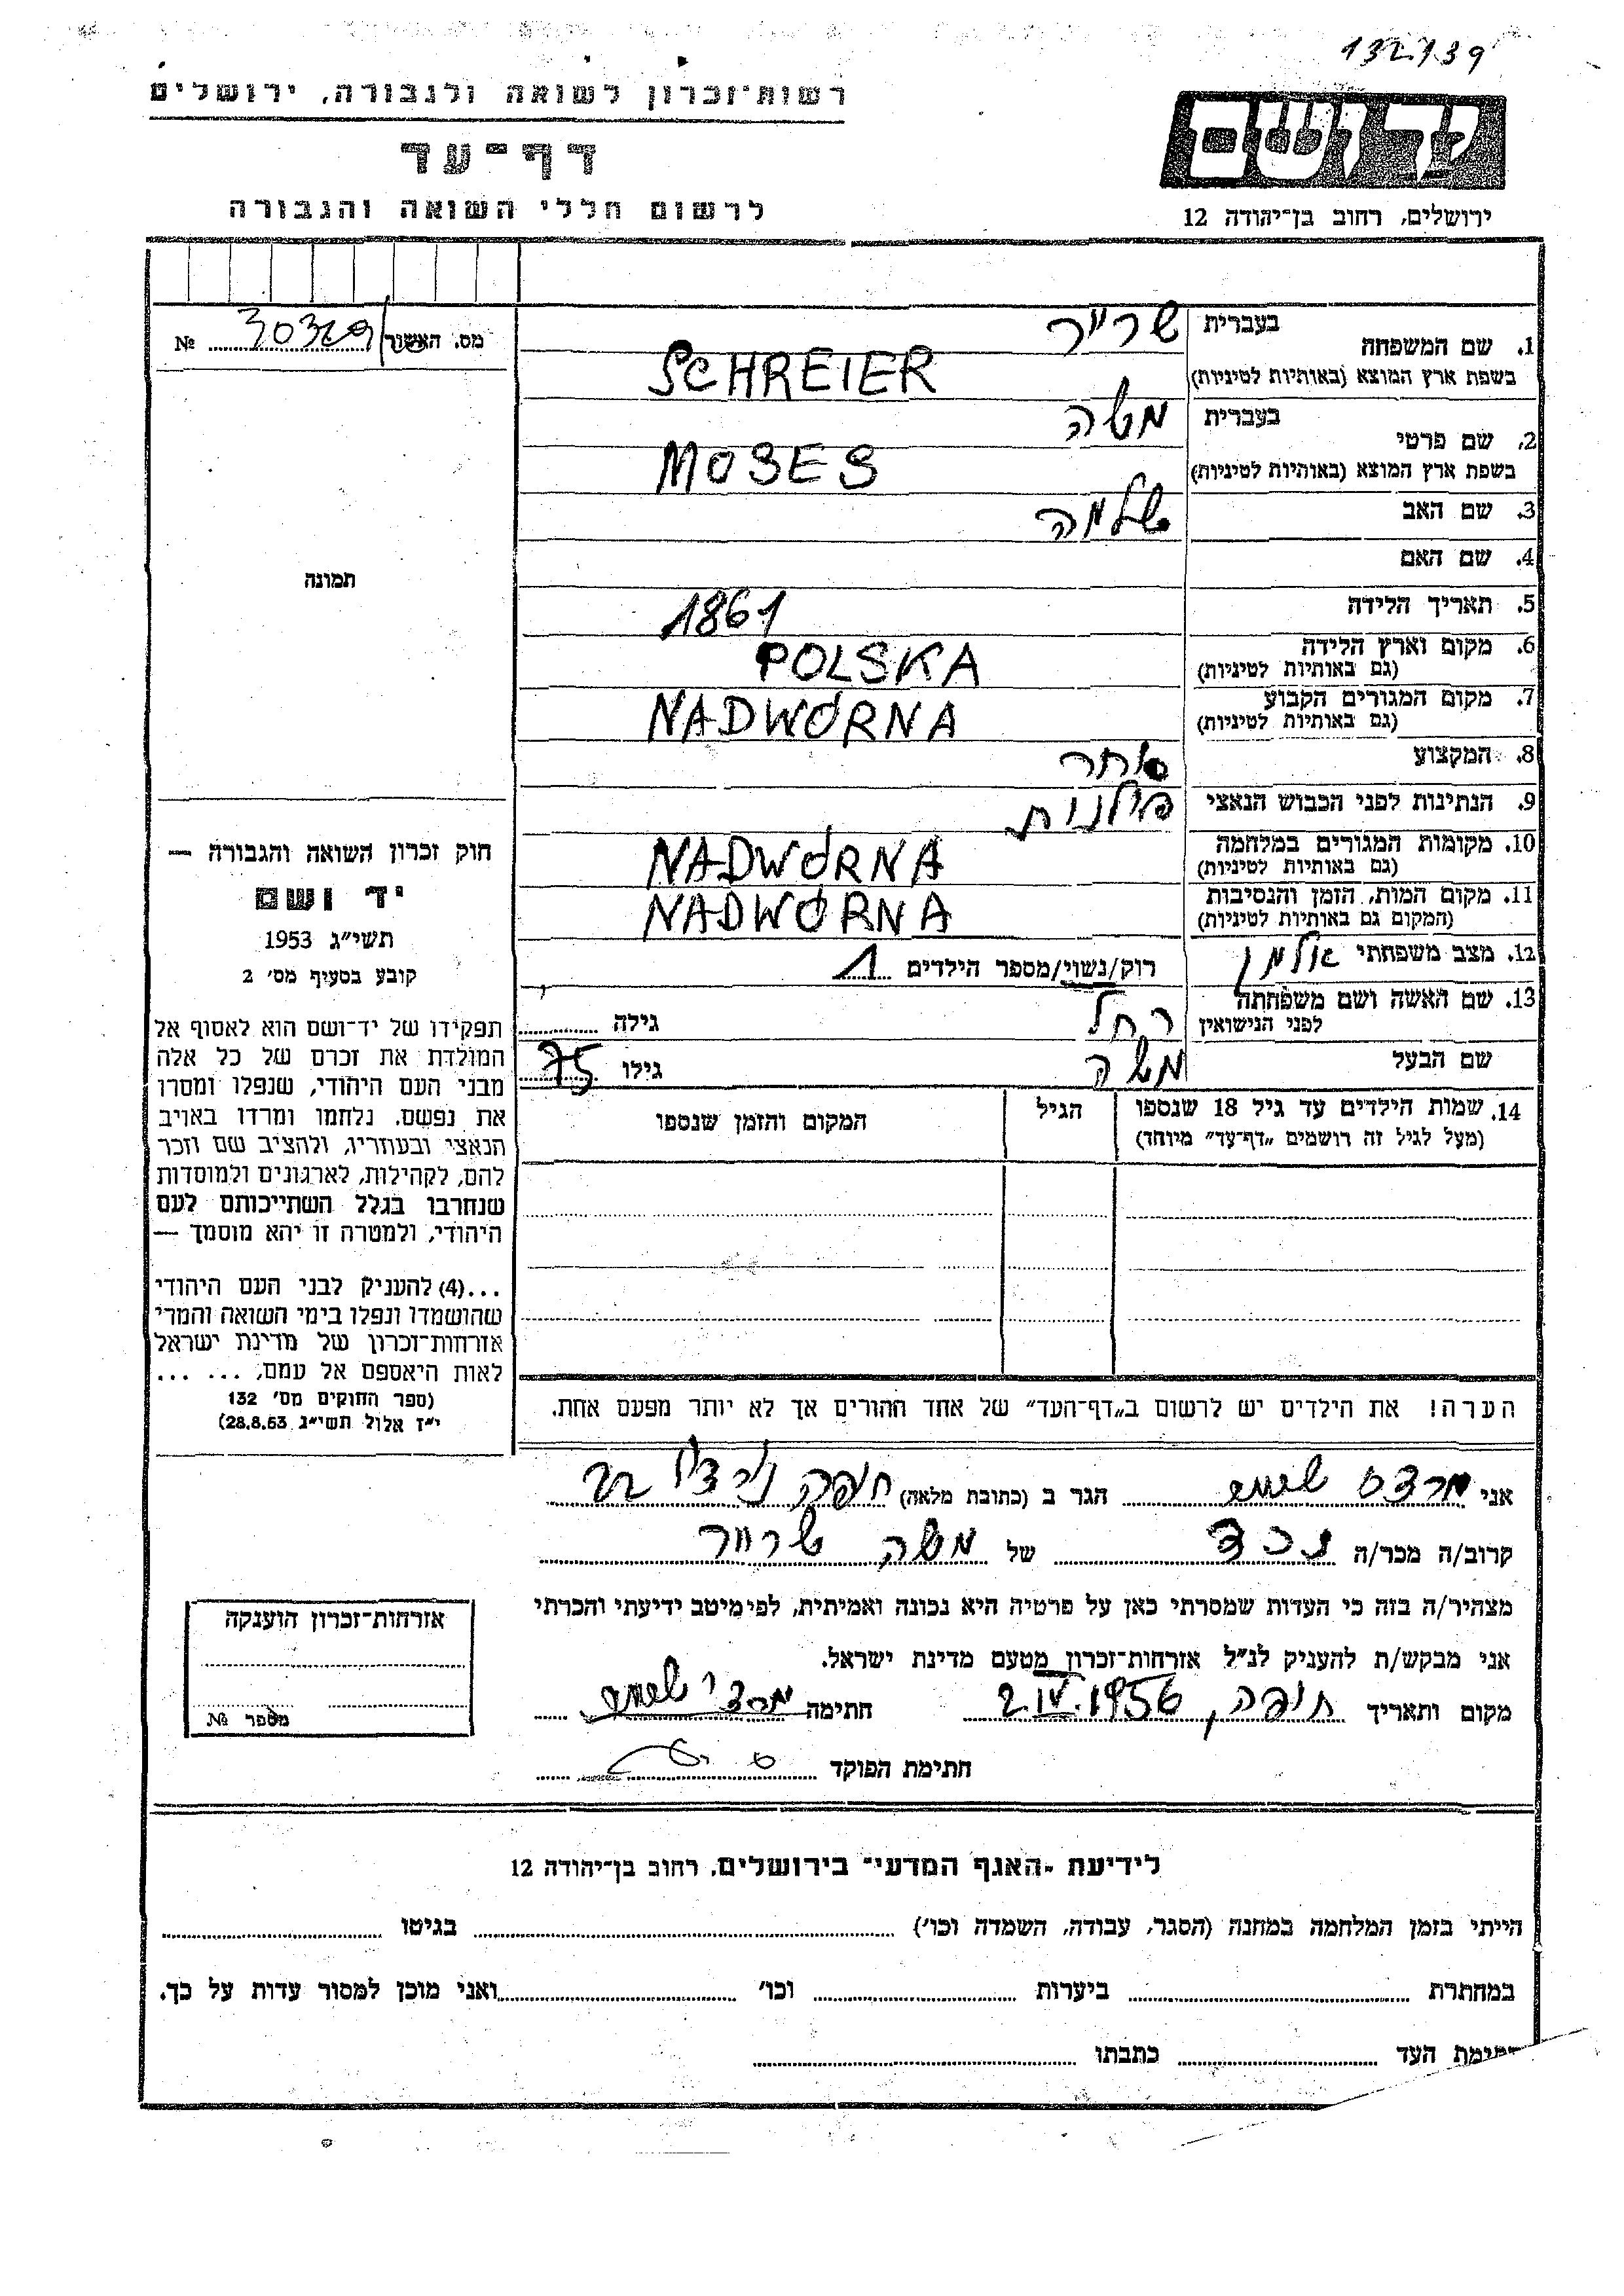 132139
רשות־זכרון לשואה ולגבורה, ירושלים
ידושם
דף־עד
לרשום חללי השואה והגבורה
ירושלים, רחוב בן־יהודה 12
מס. האשור 30329 №
1. שם המשפחה
בעברית שרייר
בשפת ארץ המוצא (באותיות לטיניות) SCHREIER
2. שם פרטי
בעברית משה
בשפת ארץ המוצא (באותיות לטיניות) MOSES
3. שם האב שלמה
4. שם האם
5. תאריך הלידה 1861
6. מקום וארץ הלידה (גם באותיות לטיניות) POLSKA
7. מקום המגורים הקבוע (גם באותיות לטיניות) NADWÓRNA
8. המקצוע סוחר
9. הנתינות לפני הכבוש הנאצי פולנית
10. מקומות המגורים במלחמה (גם באותיות לטיניות) NADWÓRNA
11. מקום המות, הזמן והנסיבות (המקום גם באותיות לטיניות) NADWÓRNA
12. מצב משפחתי אלמן רוק/נשוי/מספר הילדים 1
13. שם האשה ושם משפחתה לפני הנישואין רחל גילה
שם הבעל משה גילו 75
14. שמות הילדים עד גיל 18 שנספו
(מעל לגיל זה רושמים „דף־עד" מיוחד)
הגיל
המקום והזמן שנספו
תמונה
חוק זכרון השואה והגבורה —
יד ושם
תשי״ג 1953
קובע בסעיף מס׳ 2
תפקידו של יד־ושם הוא לאסוף אל
המולדת את זכרם של כל אלה
מבני העם היהודי, שנפלו ומסרו
את נפשם, נלחמו ומרדו באויב
הנאצי ובעוזריו, ולהציב שם וזכר
להם, לקהילות, לארגונים ולמוסדות
שנחרבו בגלל השתייכותם לעם
היהודי, ולמטרה זו יהא מוסמך —
...(4) להעניק לבני העם היהודי
שהושמדו ונפלו בימי השואה והמרי
אזרחות־זכרון של מדינת ישראל
לאות היאספם אל עמם, ... ...
(ספר החוקים מס׳ 132
י״ז אלול תשי״ג 28.8.53)
הערה! את הילדים יש לרשום ב„דף־העד" של אחד ההורים אך לא יותר מפעם אחת.
אני הגר ב (כתובת מלאה) חיפה 22
קרוב/ה מכר/ה נכד של משה שרייר
מצהיר/ה בזה כי העדות שמסרתי כאן על פרטיה היא נכונה ואמיתית, לפי מיטב ידיעתי והכרתי
אני מבקש/ת להעניק לנ״ל אזרחות־זכרון מטעם מדינת ישראל.
מקום ותאריך חיפה, 2.IV.1956 חתימה
חתימת הפוקד
אזרחות־זכרון הוענקה
מספר №
לידיעת „האגף המדעי" בירושלים, רחוב בן־יהודה 12
הייתי בזמן המלחמה במחנה (הסגר, עבודה, השמדה וכו׳) בגיטו
במחתרת ביערות וכו׳ ואני מוכן למסור עדות על כך.
חתימת העד כתבתו